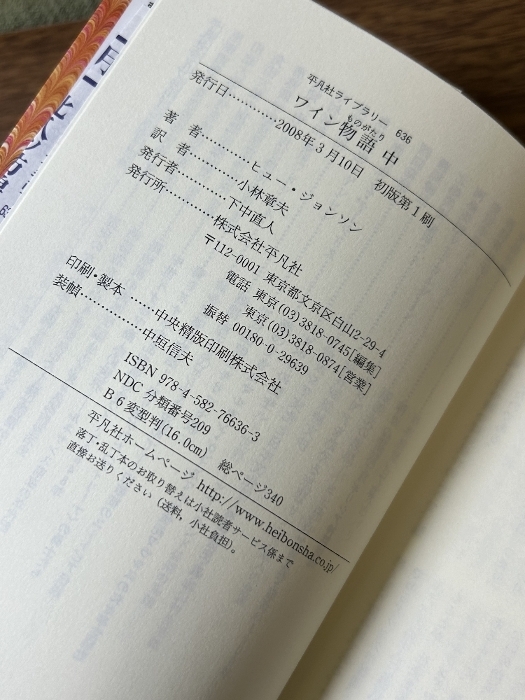 平凡社ライブラリー 636
ものがたり
ワイン物語 中
発行日…………2008年3月10日 初版第1刷
著 者…………ヒュー・ジョンソン
訳 者…………小林章夫
発行者…………下中直人
発行所…………株式会社平凡社
〒112-0001 東京都文京区白山2-29-4
電話 東京(03)3818-0745[編集]
東京(03)3818-0874[営業]
振替 00180-0-29639
印刷・製本……中央精版印刷株式会社
装幀……………中垣信夫
ISBN 978-4-582-76636-3
NDC 分類番号209
B6変型判(16.0cm) 総ページ340
平凡社ホームページ http://www.heibonsha.co.jp/
落丁・乱丁本のお取り替えは小社読者サービス係まで
直接お送りください(送料，小社負担)。